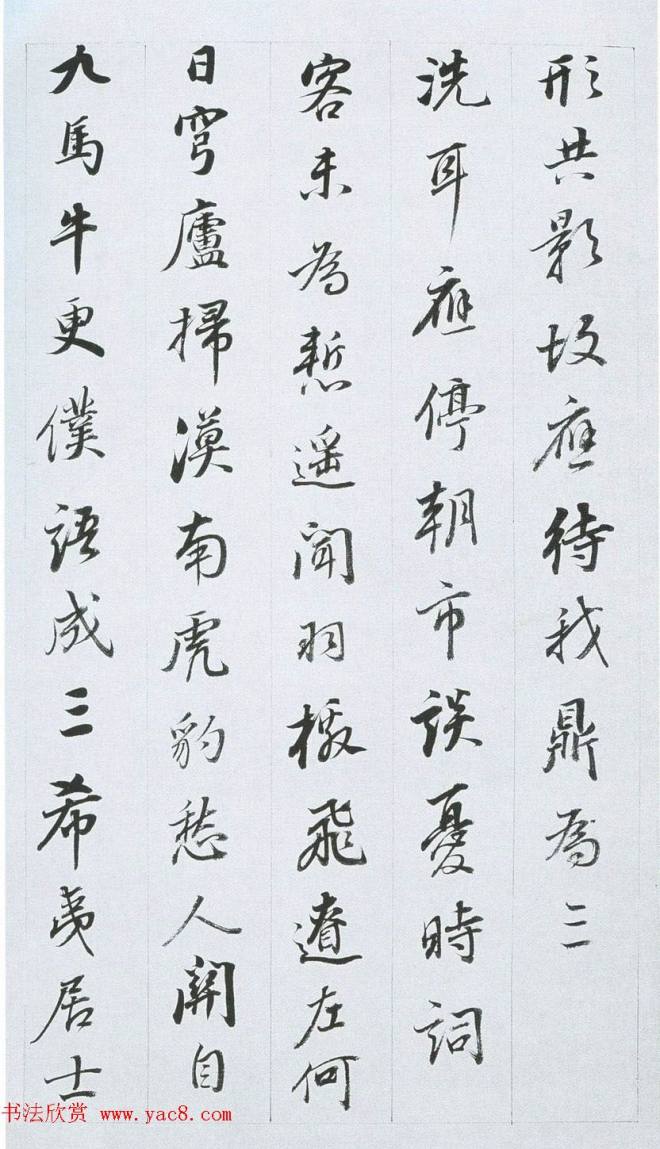 形共影故應待我鼎為三
洗耳應停朝市談憂時詞
客未為慙遥聞羽檄飛遼左何
日穹廬掃漠南虎豹愁人關自
九馬牛更僕語成三希夷居士
书法欣赏 www.yac8.com